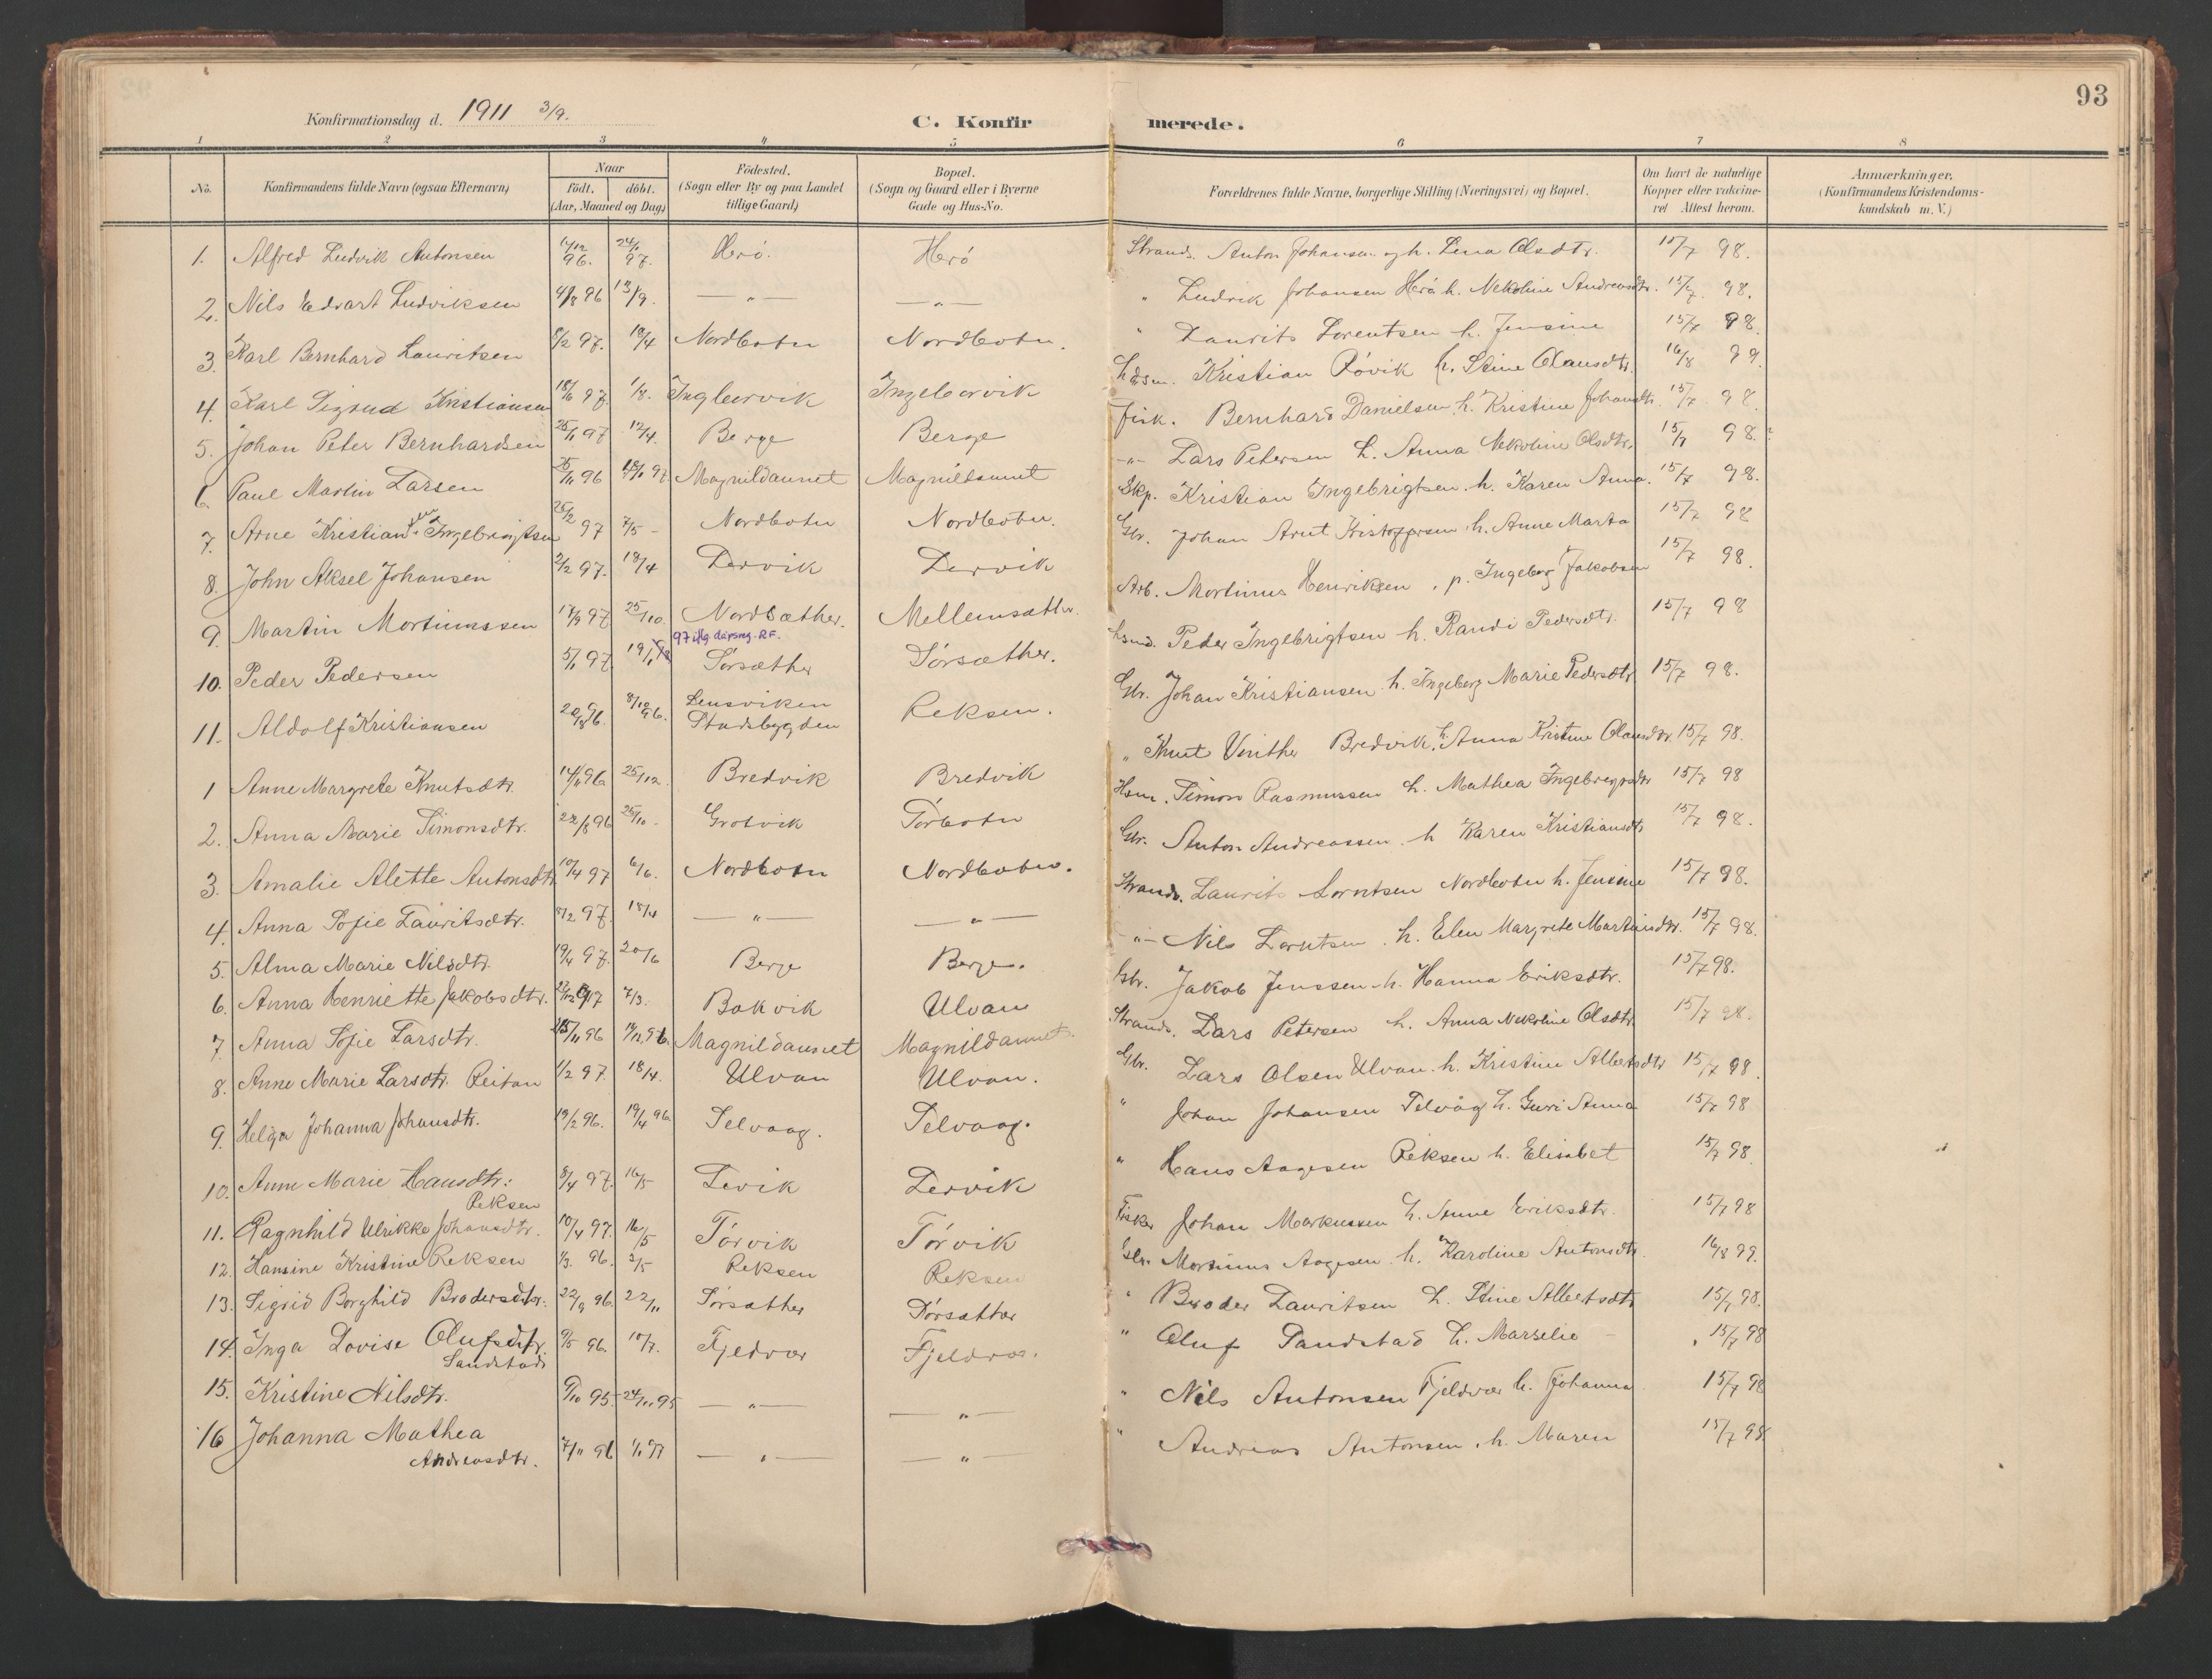 93
Konfirmationsdag d. 1911 3/9.
C. Konfirmerede.
1 2 3 4 5 6 7 8
No.
Konfirmandens fulde Navn (ogsaa Efternavn)
Naar
födt. döbt.
(Aar, Maaned og Dag)
Födested.
(Sogn eller By og paa Landet
tillige Gaard)
Bopæl.
(Sogn og Gaard eller i Byerne
Gade og Hus-No.
Forældrenes fulde Navne, borgerlige Stilling (Næringsvei) og Bopæl.
Om havt de naturlige
Kopper eller vakcine-
ret Attest herom.
Anmærkninger.
(Konfirmandens Kristendoms-
kundskab m. V.)
1. Alfred Ludvik Antonsen 96. 24/1 97. Herö. Herö Strands. Anton Johansen og h. Lena Olsdtr. 15/7 98.
2. Nils Edvart Ludviksen 4/8 96 13/9. — " — — " — " Ludvik Johansen Herö h. Nekoline Andreasdtr. 15/7 98.
3. Karl Bernhard Lauritsen 8/2 97. 18/4 Nordbotn Nordbotn. " Laurits Lorentsen h. Jensine 15/7 98.
4. Karl Sigrud Kristiansen 18/6 97. 1/8. Ingbervik Ingeborvik Kristian Rövik h. Stine Olausdtr. 16/8 99.
5. Johan Peter Bernhardsen 25/1 97 12/4. Berge Berge Fisk. Bernhard Danielsen h. Kristine Johansdtr. 15/7 98
6. Paul Martin Larsen 25/11 96 97. Magnildaunet Magnildaunet -"- Lars Petersen h. Anna Nekoline Olsdtr. 15/7 98.?
7. Arne Kristian Ingebrigtsen 25/2 97 7/5 - Nordbotn Nordbotn. Skp. Kristian Ingebrigtsen. h. Karen Anna. 15/7 98.
8. John Aksel Johansen 2/2 97. 18/4 Lervik Lervik Gbr. Johan Arnt Kristoffersen h. Anne Marta 15/7 98
9. Martin Mortinussen 17/9 97 25/10. Nordsæther. Mellemsæther. Arb. Mortinus Henriksen. p. Ingeborg Jakobsen 15/7 98.
97 iflg dåpsreg. RF.
10. Peder Pedersen 5/1 97 19/1 Sörsæther Sörsæther. Peder Ingebrigtsen h. Randi Pedersdtr. 15/7 98
11. Aldolf Kristiansen 96. 8/12 96. Lensviken Stadsbygden Reksen. Gbr. Johan Kristiansen h. Ingeborg Marie Pedersdtr 15/7 98.
1 Anne Margrete Knutsdtr. 14/11 96 25/12. Bredvik Bredvik " Knut Vinther Bredvik, h. Anna Kristine Olausdtr. 15/7 98.
2. Anna Marie Simonsdtr. 22/8 96 25/10. Grotvik Sörbotn Hsm. Simon Rasmussen h. Mathea Ingebregtsdtr 15/7 98
3. Amalie Alette Antonsdtr 10/4 97 6/6. Nordbotn Nordbotn. Gbr. Anton Andreassen. h Karen Kristiansdtr 15/7 98.
4. Anna Sofie Lauritsdtr. 8/2 97. 18/4 — " — — " — Strands. Laurits Lorntsen Nordbotn h. Jensine 15/7 98.
5. Alma Marie Nilsdtr. 19/4 97. 20/6 Berge Berge. -"- Nils Lorntsen. h. Elen Margrete Martindtr. 15/7 98.
6. Anna Henriette Jakobsdtr. 7/3. Bakvik Ulvan Gbr. Jakob Jenssen h. Hanna Eriksdtr. 15/7 98.
7. Anna Sofie Larsdtr. 25/11 96 Magnildaunet Magnildaunet Strands. Lars Petersen h. Anna Nekoline Olsdtr. 15/7 98.
8. Anne Marie Larsdtr. Reitan 1/2 97. 18/4. Ulvan Ulvan. Gbr. Lars Olsen Ulvan. h. Kristine Albertsdtr 15/7 98.
9. Helga Johanna Johansdtr. 19/2 96. 19/4 96. Selvaag. Selvaag. " Johan Johansen Selvåg h. Guri Anna 15/7 98
10. Anne Marie Hansdtr: Reksen 8/4 97. 16/5 Levik Lervik " Hans Aagesen Reksen h. Elisabet 15/7 98.
11. Ragnhild Ulrikke Johansdtr. 10/4 97. 16/5 Sörvik Sörvik Fisker Johan Markussen h. Anne Eriksdtr. 15/7 98
12. Hansine Kristine Reksen 1/3. 96. 3/5 Reksen Reksen Gbr. Mortinus Aagesen. h. Karoline Antonsdtr. 16/8 99.
13. Sigrid Borghild Brodersdtr. 22/9 96. 22/11 Sörsæther Sörsæther " Broder Lauritsen h. Stine Albertsdtr 15/7 98.
14. Inga Lovise Olufsdtr. Sandstad 9/5 96. 10/7. Fjeldvær Fjeldvær. " Oluf Sandstad h. Marselie 15/7 98
15. Kristine Nilsdtr. 9/10 95. 24/11 95 — " — — " — " Nils Antonsen Fjeldvær h. Johanna 15/7 98
16 Johanna Mathea Andreasdtr. 7/11 96 1/1 97 — " — — " — " Andreas Antonsen. h. Maren 15/7 98.